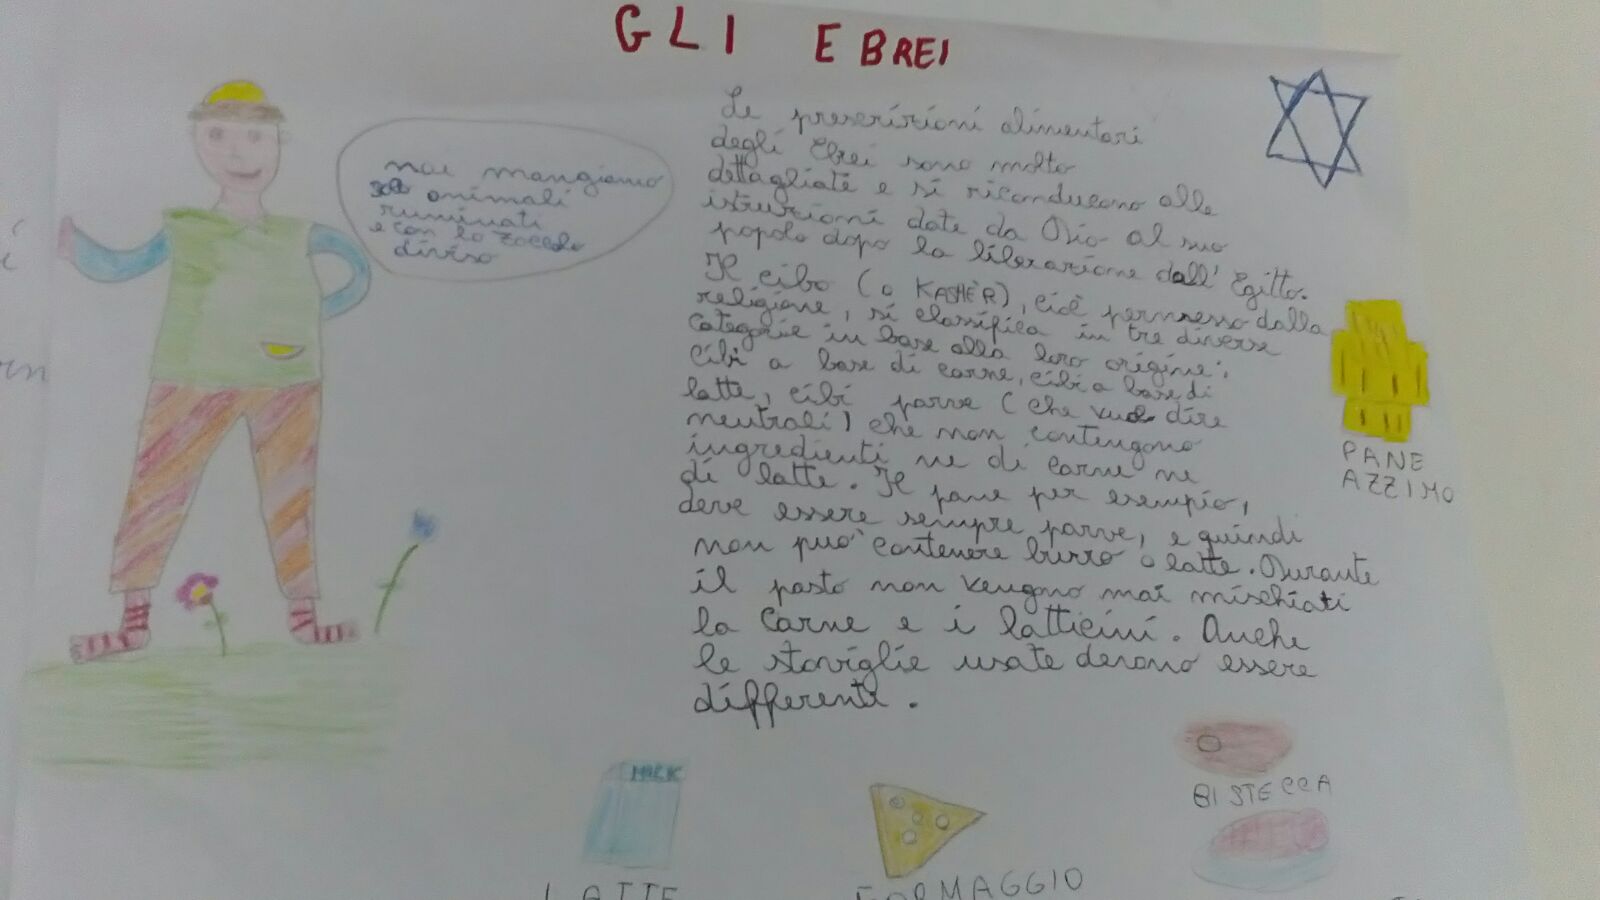 GLI EBREI
noi mangiamo
solo animali
ruminati
e con lo zoccolo
diviso
Le prescrizioni alimentari
degli Ebrei sono molto
dettagliate e si riconducono alle
istruzioni date da Dio al suo
popolo dopo la liberazione dall'Egitto.
Il cibo (o KASHÈR), cioè permesso dalla
religione, si classifica in tre diverse
categorie in base alla loro origine:
cibi a base di carne, cibi a base di
latte, cibi parve (che vuol dire
neutrali) che non contengono
ingredienti ne di carne ne
di latte. Il pane per esempio,
deve essere sempre parve, e quindi
non può contenere burro o latte. Durante
il pasto non vengono mai mischiati
la carne e i latticini. Anche
le stoviglie usate devono essere
differenti.
PANE
AZZIMO
MILK
LATTE
FORMAGGIO
BISTECCA